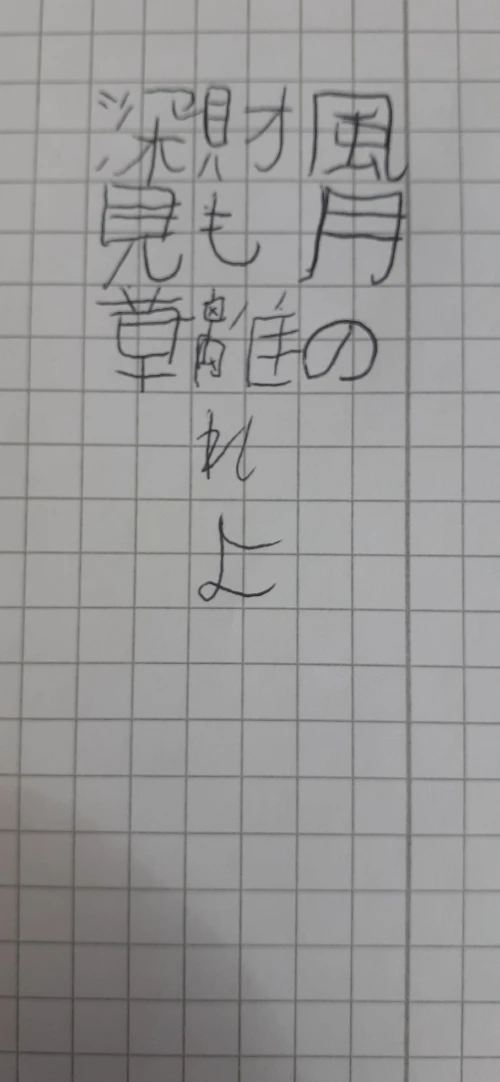 風月の
財も離れよ
深見草